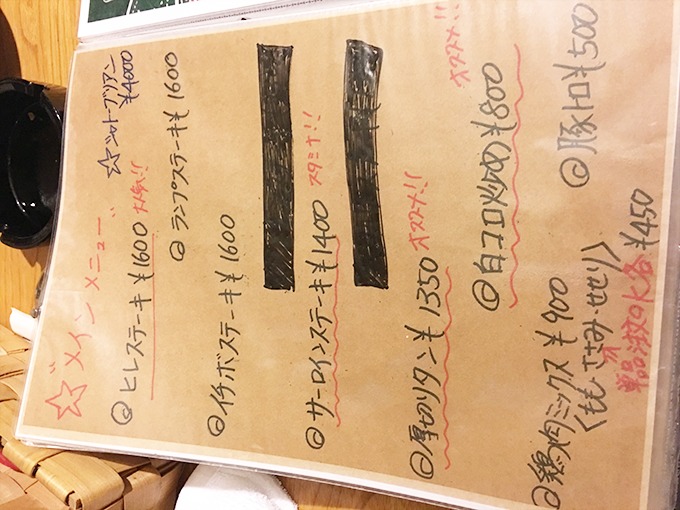 ☆メインメニュー
◎ヒレステーキ¥1600 大人気!!
☆シャトーブリアン
¥4000
◎ランプステーキ¥1600
◎イチボステーキ¥1600
◎サーロインステーキ¥1400 スタミナ!!
◎厚切りタン¥1350 オススメ!!
◎白コロ炒め¥800 オススメ!!
◎鶏肉ミックス¥900
<もも、ささみ・せせり>
単品注文OK 各¥450
◎豚トロ¥500